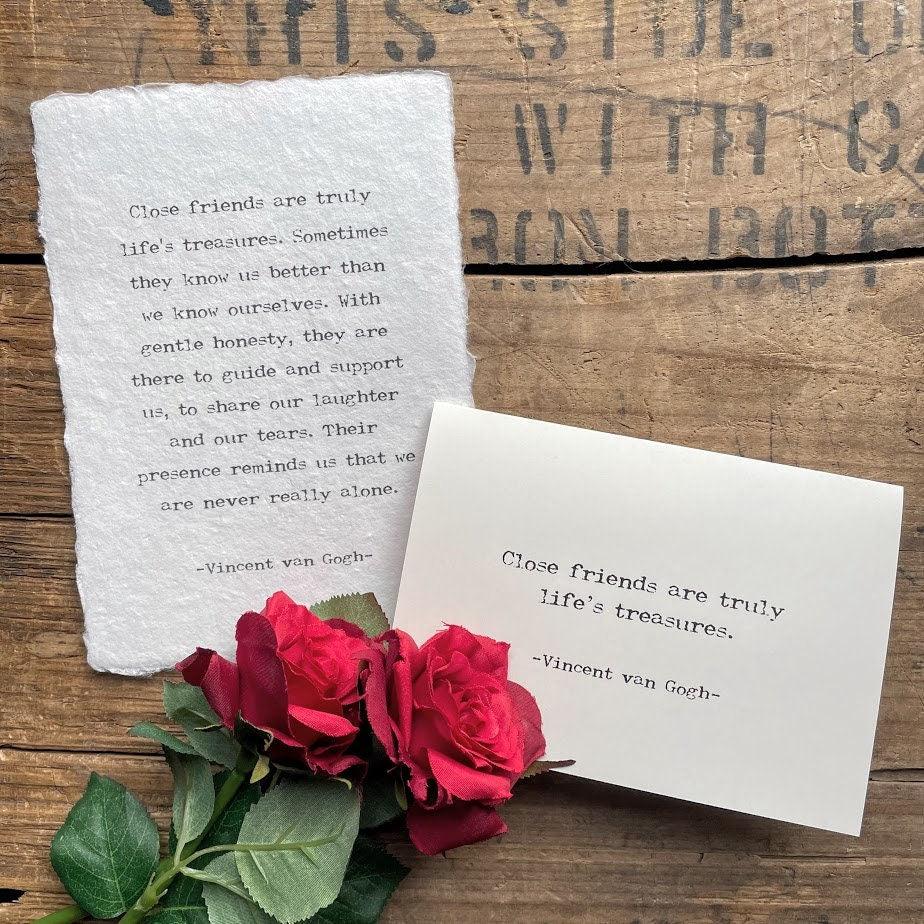 THIS SIDE
WITH
Close friends are truly
life's treasures. Sometimes
they know us better than
we know ourselves. With
gentle honesty, they are
there to guide and support
us, to share our laughter
and our tears. Their
presence reminds us that we
are never really alone.
-Vincent van Gogh-
Close friends are truly
life's treasures.
-Vincent van Gogh-